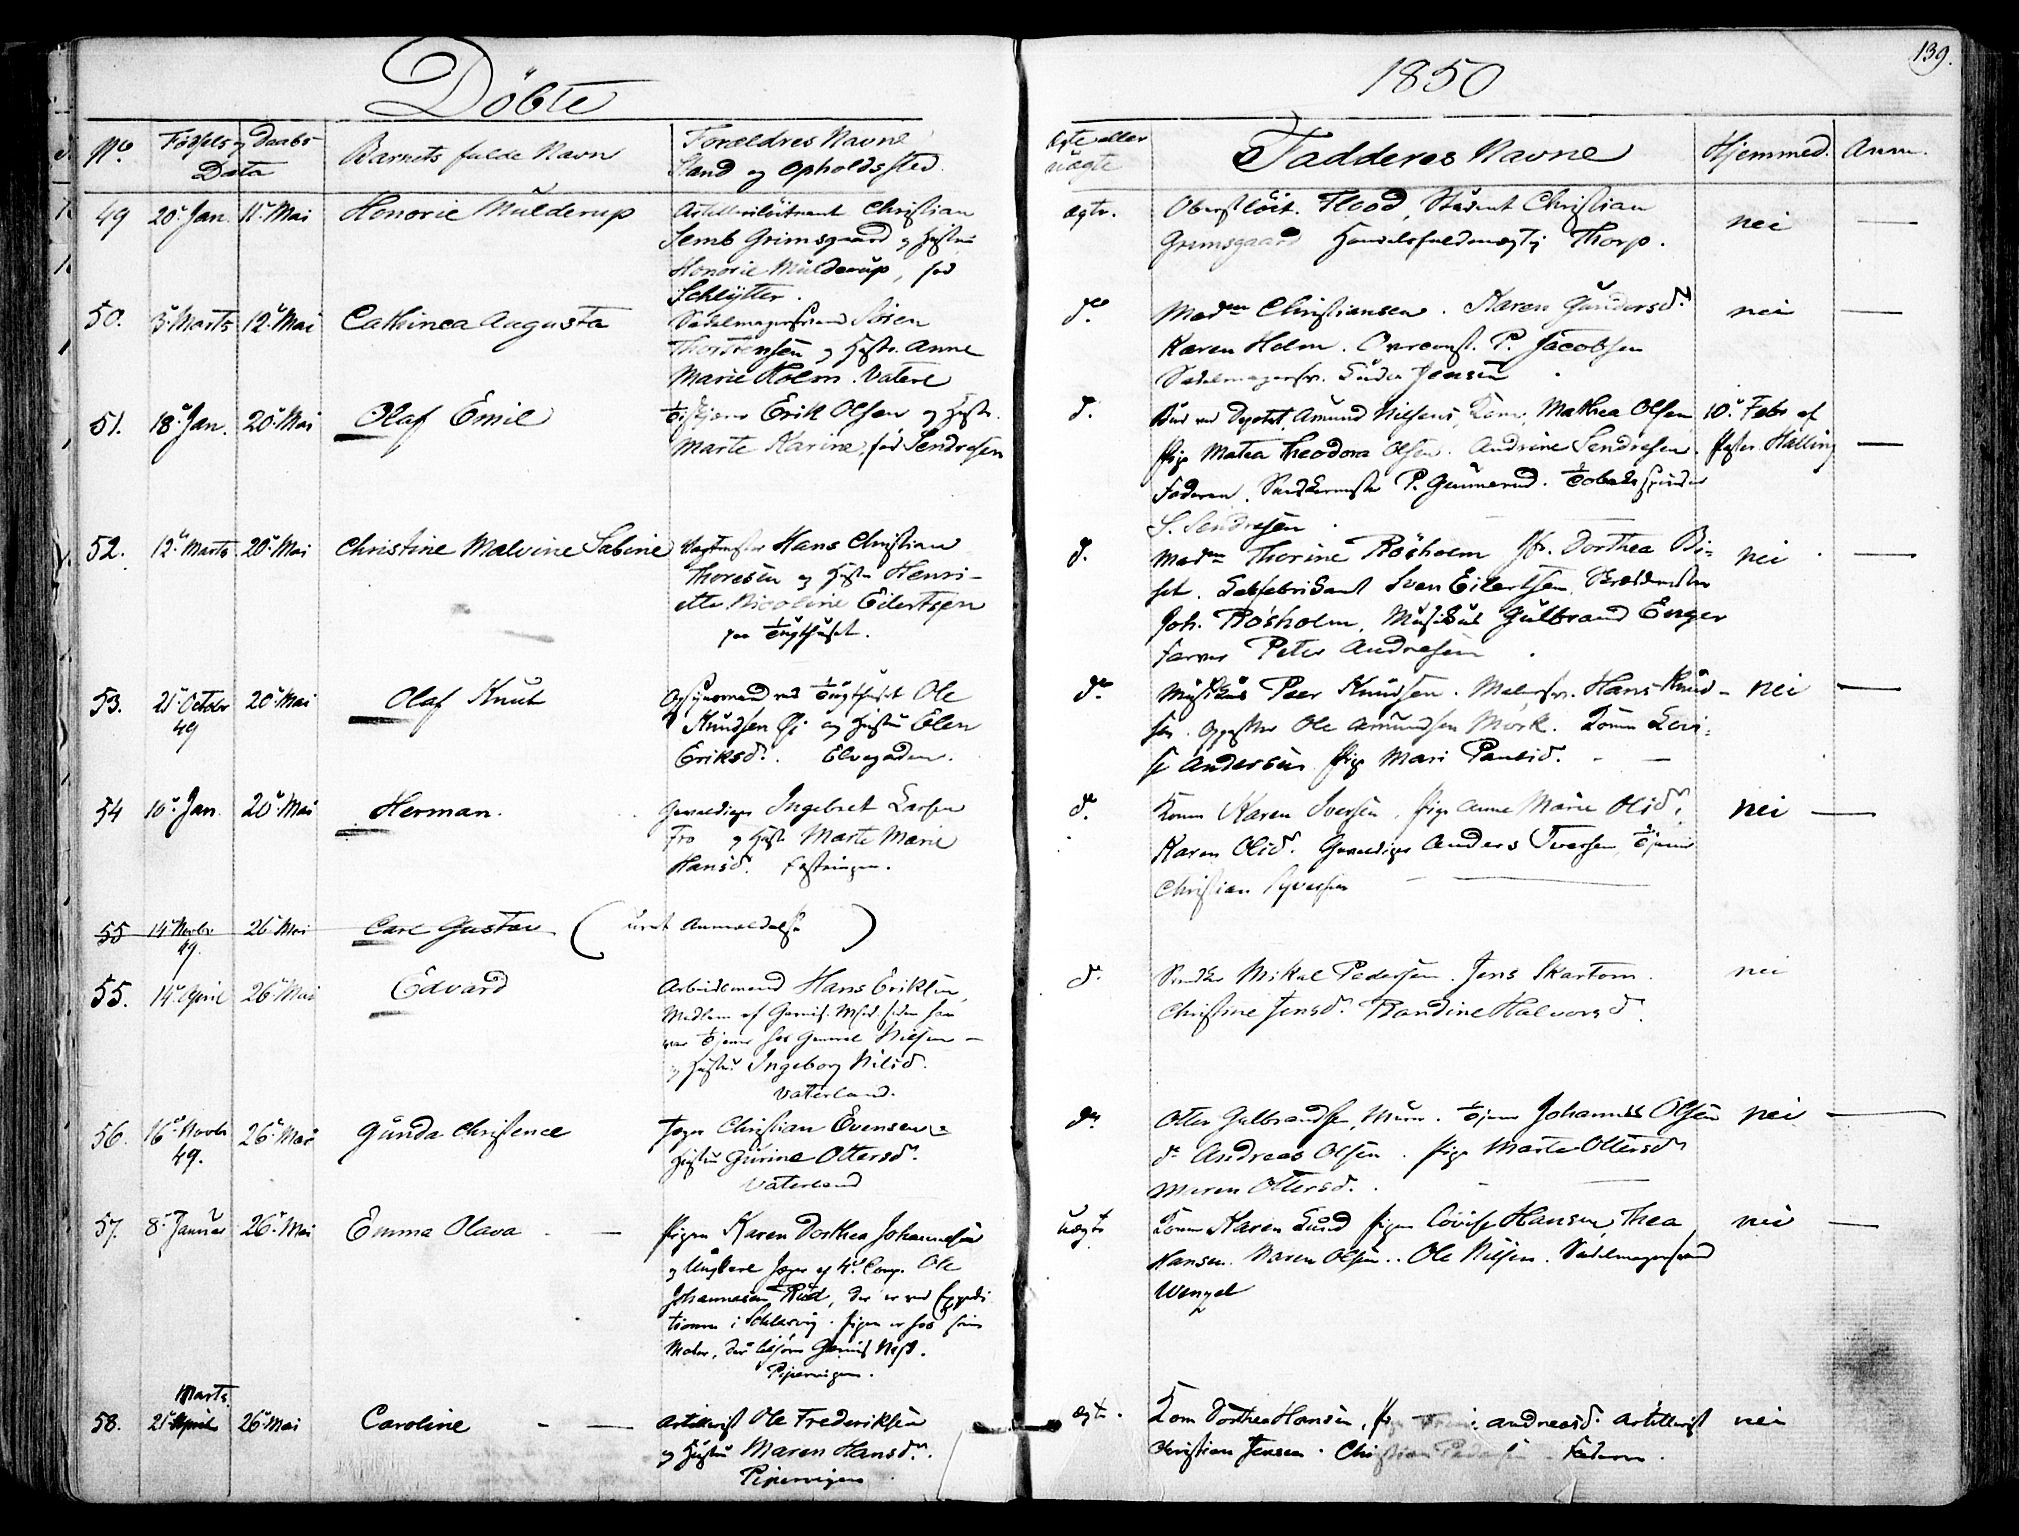 Döbte
1850
139.
No.
Födsels og Daabs
Data
Barnets fulde Navn
Forældres Navne
Stand og Opholdssted.
Ægte eller
uægte
Faddernes Navne
Hjemmed.
Anm.
49 20de Jan. 11te Mai Honorie Mülderup
Artillerilöitnant Christian
Semb Grimsgaard og Hustru
Honorie Mülderup, fød
Schlytter.
ægte.
Oberstlöit. Flood, Student Christian
Grimsgaard Handelsfuldmægtig Thorp.
nei —
50. 3die Marts 12te Mai Cathinca Augusta
Sadelmagersvend Sören
Thorstensen og Hustr. Anne
Marie Holm. Vaterl
do
Madm Christiansen. Karen Gundersdr
Karen Holm. Overconst. P. Jacobsen
Sadelmagersv. Jensen
nei —
51. 18de Jan. 20de Mai Olaf Emil
Erik Olsen og Hustr.
Marte Karine, fød Sendresen
d.
Bud ved Depotet, Amund Nielsens Kone, Mathea Olsen
Pige Matea Theodora Olsen. Andrine Sendresen.
Faderen. P. Gunnerud. Tobaksspinder
S. Sendresen
10de Febr af
Pastor Halling —
52. 12te Marts 20de Mai Christine Malvine Sabine
Vagtmester Hans Christian
Thoresen og Hustr Henri-
ette Nicoline Eilertsen
paa Tugthuset.
d.
Madm Thorine Rösholm Jfr. Dorthea Bi-
set. Fabrikant Sven Eilertsen,
Joh. Rösholm, Musikus Gulbrand Enger
Farver Peter Andresen
nei —
53. 21de October 20de Mai Olaf Knut
49
Opsynsmand ved Tugthuset Ole
Knudsen Øi og Hustru Elen
Eriksdr. Elvegaden.
do
Musikus Peer Knudsen. Malersv. Hans Knud-
sen. Ole Amundsen Mörk. Konen Lovi-
se Andersen Pige Mari Paulsdr.
nei —
54 10de Jan. 20de Mai Herman.
Gevaldiger Ingebret Larsen
Fro og Hustr Marte Marie
Hansdr. Fæstningen.
do.
Kone Karen Iversen, Pige Anne Marie Olsdr,
Karen Olsdr. Gevaldiger Anders Iversen, Tjener
Christian Syversen
nei —
55 14de Novbr 26de Mai Carl Gustav (uret Anmeldelse)
49.
55. 14de April 26de Mai Edvard
Arbeidsmand Hans Eriksen,
Medlem af Garnis. Mhed siden han
var Tjener hos General Nielsen —
og Hustru Ingeborg Nilsdr.
Vaterland.
d.
Snedker Mikal Pedersen. Jens Skartom.
Christine Jensdr. Randine Halvorsdr.
nei
56. 16de Novbr 26de Mai Gunda Christence
49.
Jæger Christian Evensen og
Hustru Gurine Ottersdr.
Vaterland
do
Otter Gulbrandsen, Murer. Tjener Johannes Olsen
do Andreas Olsen. Pige Marte Ottersdr
Maren Ottersdr.
nei —
57. 8de Januar 26de Mai Emma Olava —
Pigen Karen Dorthea Johannesen
og Ungkarl Jæger af 4de Comp. Ole
Johannesen Rud, der er ved Expedi
tionen i Schlesvig. Pigen er hos sin
Moder, der Garnis Mhd.
Pipervigen.
uægte
Konen Karen Lund Pigen Lovise Hansen, Thea
Hansen. Maren Olsen. Ole Nilsen. Sadelmagersvend
Wengel
nei —
58. Marts
21de April 26de Mai Caroline — —
Artillerist Ole Frederiksen
og Hustru Maren Hansdr.
Pipervigen
ægte.
Kone Dorthea Hansen, Pige Andreasdr. Artillerist
Christian Jensen. Christian Pedersen. Faderen.
nei